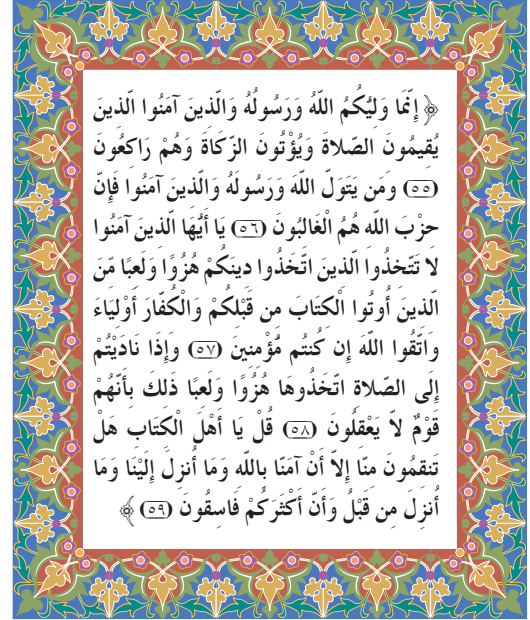 ﴿ إِنَّمَا وَلِيُّكُمُ اللَّهُ وَرَسُولُهُ وَالَّذِينَ آمَنُوا الَّذِينَ
يُقِيمُونَ الصَّلاةَ وَيُؤْتُونَ الزَّكَاةَ وَهُمْ رَاكِعُونَ
(٥٥) وَمَن يَتَوَلَّ اللَّهَ وَرَسُولَهُ وَالَّذِينَ آمَنُوا فَإِنَّ
حِزْبَ اللَّهِ هُمُ الْغَالِبُونَ (٥٦) يَا أَيُّهَا الَّذِينَ آمَنُوا
لا تَتَّخِذُوا الَّذِينَ اتَّخَذُوا دِينَكُمْ هُزُوًا وَلَعِبًا مِّنَ
الَّذِينَ أُوتُوا الْكِتَابَ مِن قَبْلِكُمْ وَالْكُفَّارَ أَوْلِيَاءَ
وَاتَّقُوا اللَّهَ إِن كُنتُم مُّؤْمِنِينَ (٥٧) وَإِذَا نَادَيْتُمْ
إِلَى الصَّلاةِ اتَّخَذُوهَا هُزُوًا وَلَعِبًا ذَلِكَ بِأَنَّهُمْ
قَوْمٌ لاَّ يَعْقِلُونَ (٥٨) قُلْ يَا أَهْلَ الْكِتَابِ هَلْ
تَنقِمُونَ مِنَّا إِلاَّ أَنْ آمَنَّا بِاللَّهِ وَمَا أُنزِلَ إِلَيْنَا وَمَا
أُنزِلَ مِن قَبْلُ وَأَنَّ أَكْثَرَكُمْ فَاسِقُونَ (٥٩) ﴾